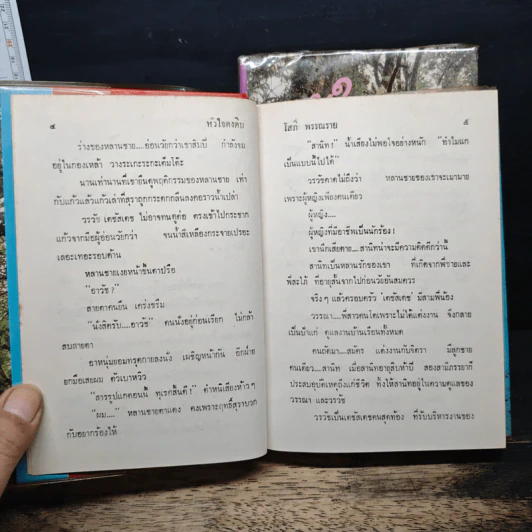 ๔ หัวใจดงดิบ
ร่างของหลานชาย....อ่อนวัยกว่าเขาสิบปี กำลังจม
อยู่ในกองเหล้า วางระเกะระกะเต็มโต๊ะ
นานเท่านานที่เขายืนดูพฤติกรรมของหลานชาย เท่า
กับแก้วแล้วแก้วเล่าที่สุราถูกกระดกกลืนลงคอราวน้ำเปล่า
วรวัช เดชัสเดช ไม่อาจทนดูต่อ ตรงเข้าไปกระชาก
แก้วจากมือผู้อ่อนวัยกว่า จนน้ำสีเหลืองกระจายเปรอะ
เลอะเทอะรอบด้าน
หลานชายเงยหน้าขึ้นตาปรือ
"อาวัช?"
สายตาคนยืน เคร่งขรึม
"นั่งสิครับ....อาวัช" คนนั่งอยู่ก่อนเรียก ไม่กล้า
สบสายตา
อาหนุ่มยอมทรุดกายลงนั่ง เผชิญหน้ากัน อีกฝ่าย
ยกมือเสยผม ตัวเบาหวิว
"สารรูปแกตอนนี้ ทุเรศสิ้นดี!" ตำหนิเสียงห้าวๆ
"ผม...." หลานชายตาแดง คงเพราะฤทธิ์สุราบวก
กับอยากร้องไห้
โสภี พรรณราย ๕
"สานิท!" น้ำเสียงไม่พอใจอย่างหนัก "ทำไมแก
เป็นแบบนี้ไปได้"
วรวัชคาดไม่ถึงว่า หลานชายของเขาจะเมามาย
เพราะผู้หญิงเพียงคนเดียว
ผู้หญิง....
ผู้หญิงที่มีอาชีพเป็นนักร้อง!
เขานึกเสียดาย....สานิทน่าจะมีความคิดดีกว่านี้
สานิทเป็นหลานรักของเขา ที่เกิดจากพี่ชายและ
พี่สะใภ้ ที่อายุสั้นจากไปก่อนวัยอันสมควร
จริงๆ แล้วครอบครัว เดชัสเดช มีสามพี่น้อง
วรรณา....พี่สาวคนโตเพราะไม่ได้แต่งงาน จึงกลาย
เป็นป้าแก่ ดูแลงานบ้านเรือนทั้งหมด
คนถัดมา....สมัคร แต่งงานกับจิตรา มีลูกชาย
คนเดียว....สานิท เมื่อสานิทอายุสิบห้าปี สองสามีภรรยาก็
ประสบอุบัติเหตุถึงแก่ชีวิต ทิ้งให้สานิทอยู่ในความดูแลของ
วรรณา และวรวัช
วรวัชเป็นเดชัสเดชคนสุดท้อง ที่รับบริหารงานของ